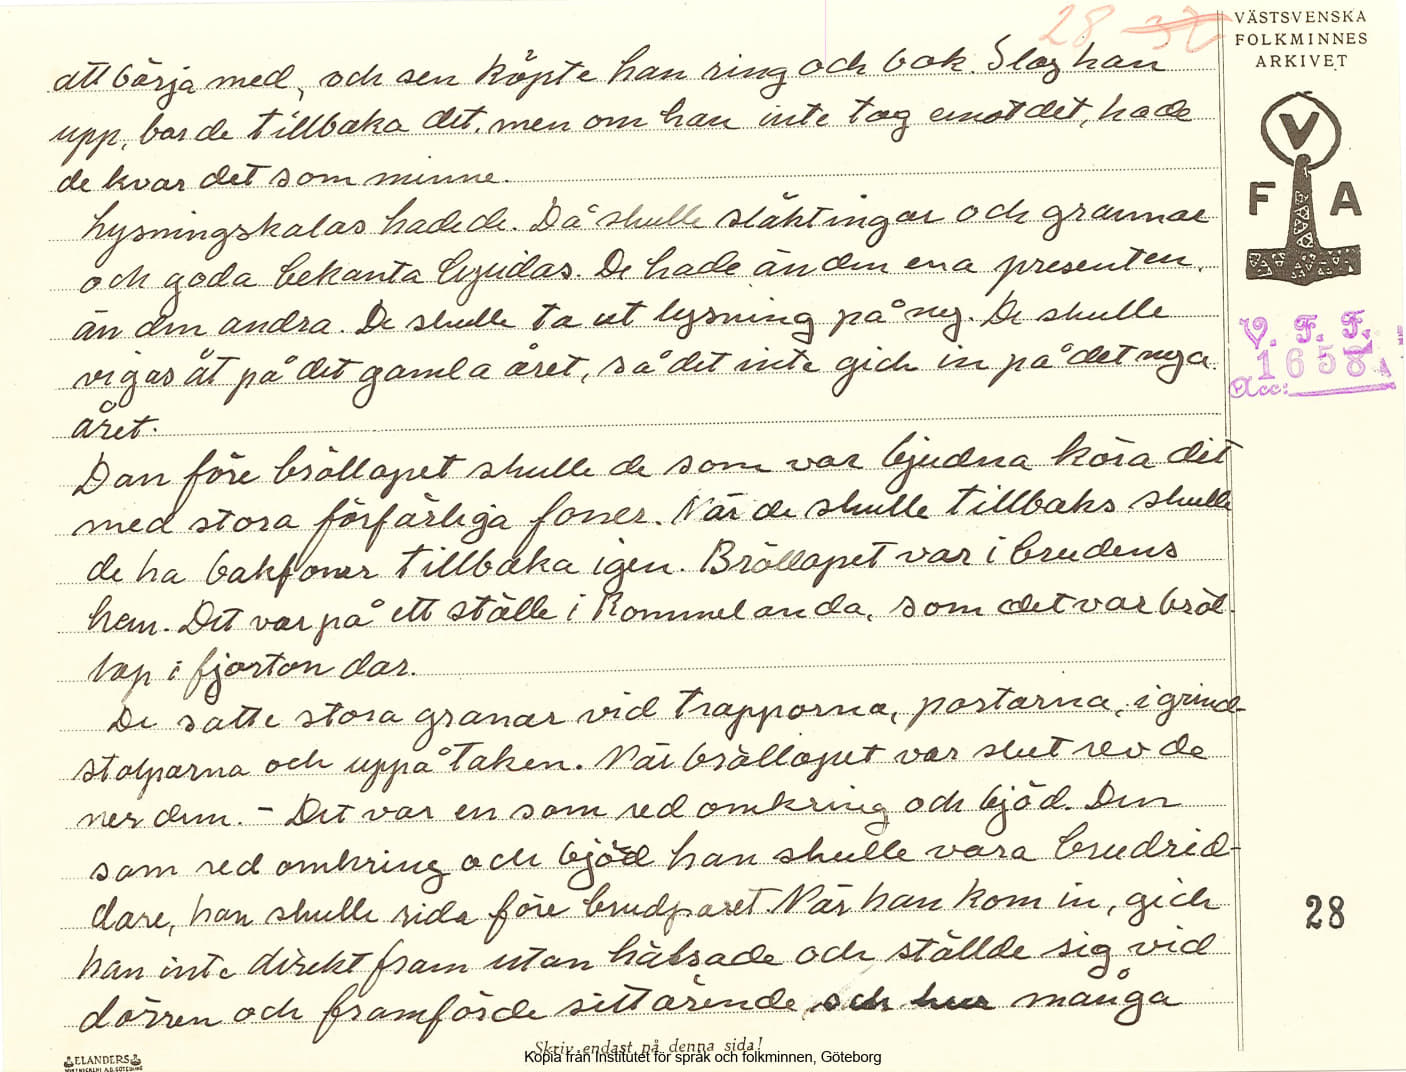 28
VÄSTSVENSKA
FOLKMINNES
ARKIVET
V
F A
V. F. F.
1658
Acc:
att börja med, och sen köpte han ring och bok. Slog han
upp, bar de tillbaka det, men om han inte tog emot det, hade
de kvar det som minne.
Lysningskalas hade de. Då skulle släktingar och grannar
och goda bekanta bjudas. De hade än den ena presenten,
än den andra. De skulle ta ut lysning på ny. De skulle
vigas åt på det gamla året, så det inte gick in på det nya
året.
Dan före bröllopet skulle de som var bjudna köra dit
med stora förfärliga foner. När de skulle tillbaks skulle
de ha bakfoner tillbaka igen. Bröllopet var i brudens
hem. Det var på ett ställe i Rommelanda, som det var bröl-
lop i fjorton dar.
De satte stora granar vid trapporna, portarna, i grind-
stolparna och uppå taken. När bröllopet var slut rev de
ner dem. - Det var en som red omkring och bjöd. Den
som red omkring och bjöd han skulle vara brudrid-
dare, han skulle rida före brudparet. När han kom in, gick
han inte direkt fram utan hälsade och ställde sig vid
dörren och framförde sitt ärende och hur många
28
Skriv endast på denna sida!
Kopia från Institutet för språk och folkminnen, Göteborg
ELANDERS